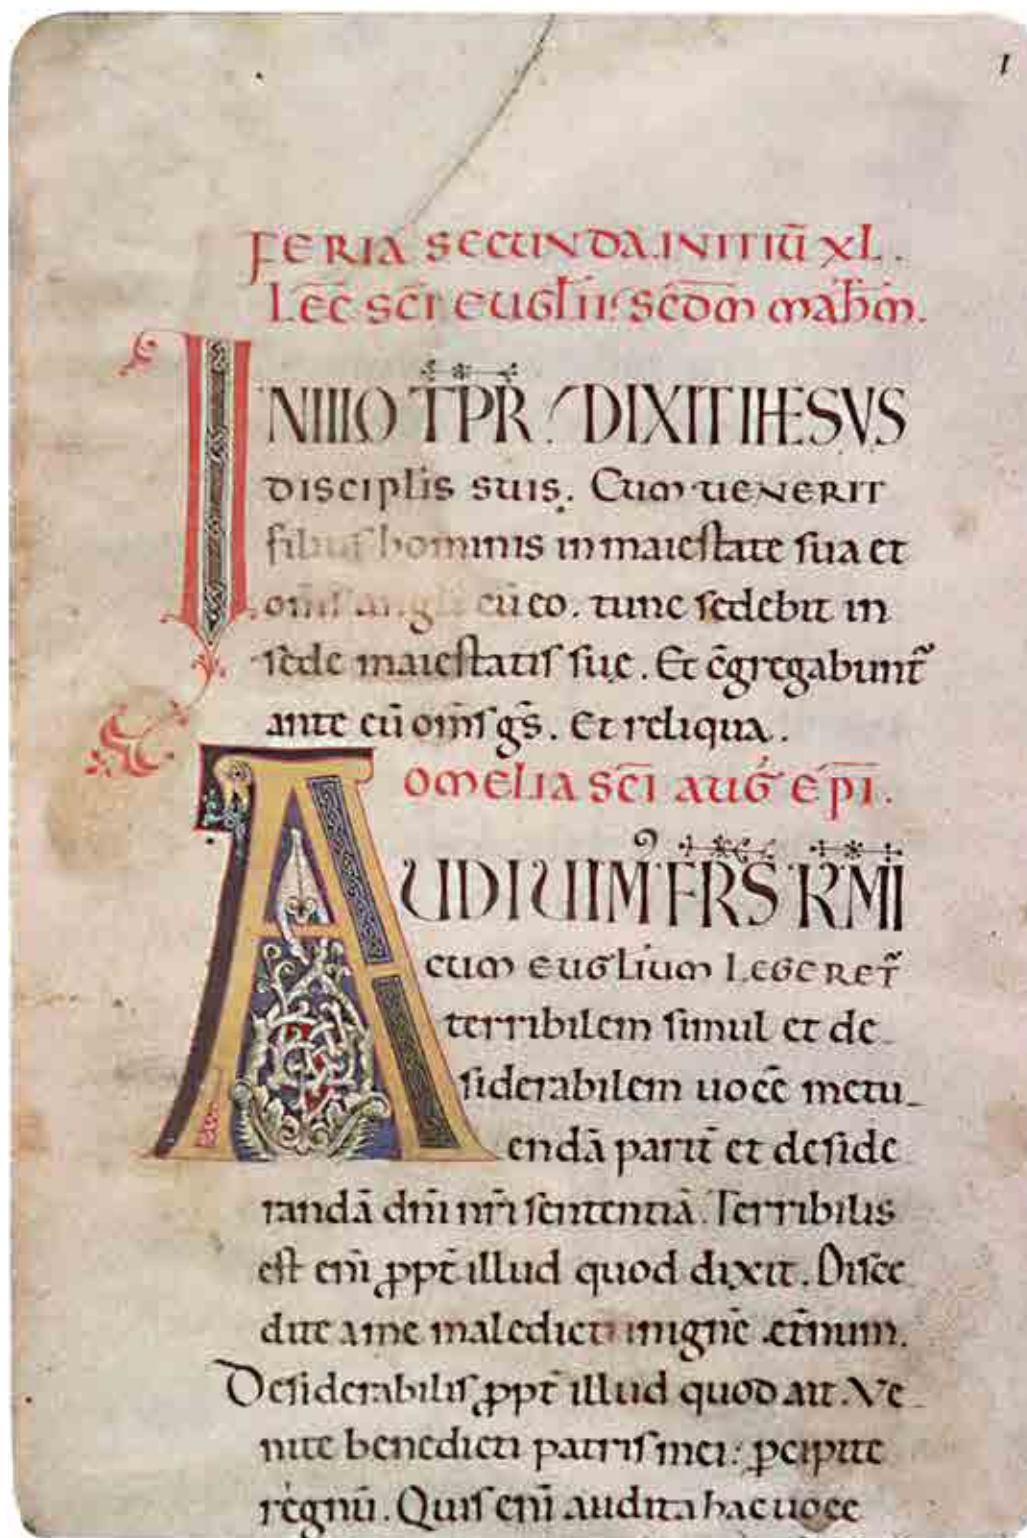 I
FERIA SECUNDA. INITIŪ XL.
LEC̄ SC̄I EUGL̄II SC̄DM MATH̄M.
IN ILLO TP̄R DIXIT IHESVS
DISCIPLIS SUIS. CUM UENERIT
filius hominis in maiestate sua et
om̄s angli cū eo. tunc sedebit in
sede maiestatis suę. Et c̄gregabunt̄
ante eū om̄s gs̄. Et reliqua.
OMELIA SC̄I AUḠ EP̄I.
AUDIUIM FR̄S KR̄MI
CUM EUGLIUM LEGERET̄
terribilem simul et de-
siderabilem uocē metu-
endā parit̄ et deside
randā dn̄i nr̄i sententiā. Terribilis
est eni ꝓpt̄ illud quod dixit. Disce
dite a me maledicti in ignē ęt̄num.
Desiderabilis ꝓpt̄ illud quod ait. Ve-
nite benedicti patris mei: ꝑcipite
regnū. Quis eni audita hac uoce